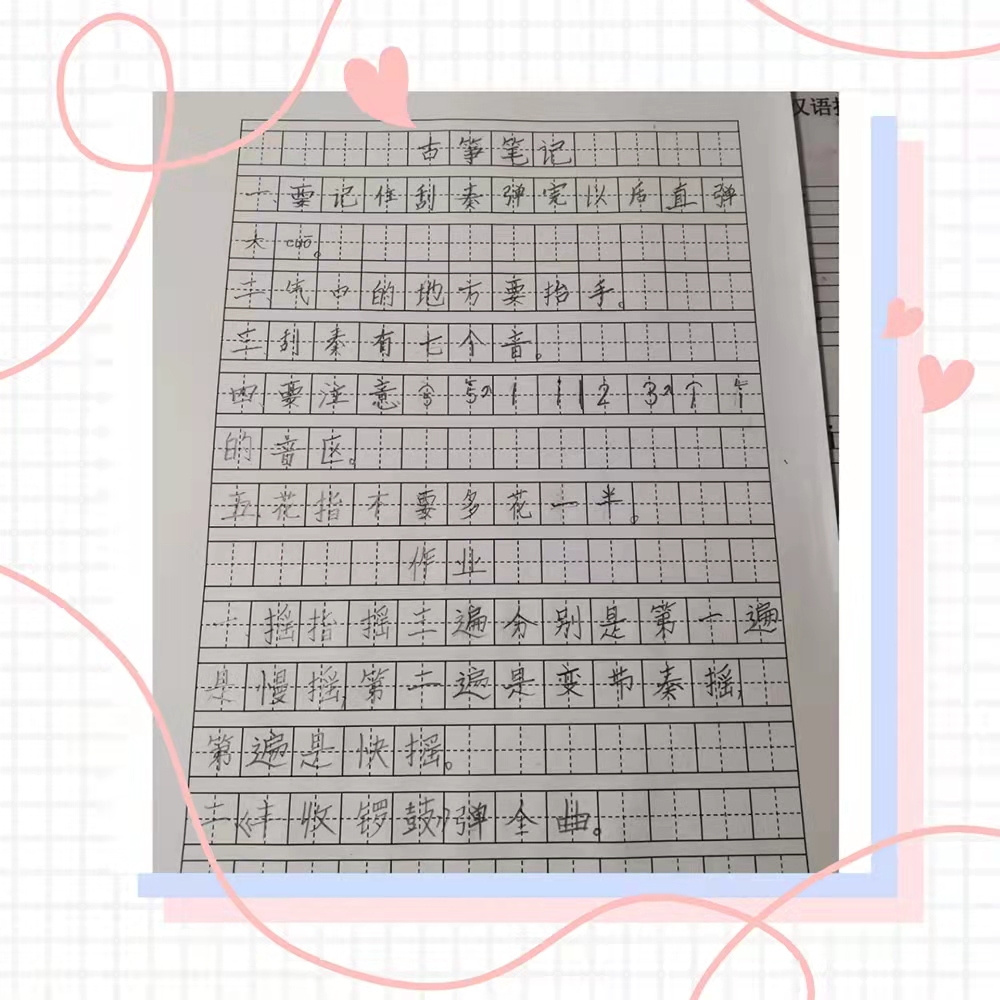 汉语拼
古筝笔记
一、要记住刮奏弹完以后直弹
大cuō。
二、气口的地方要抬手。
三刮奏有七个音。
四、要注意
的音区。
五、花指不要多花一半。
作业
一、摇指摇三遍分别是第一遍
是慢摇,第二遍是变节奏摇,
第遍是快摇。
二《丰收锣鼓》弹全曲。